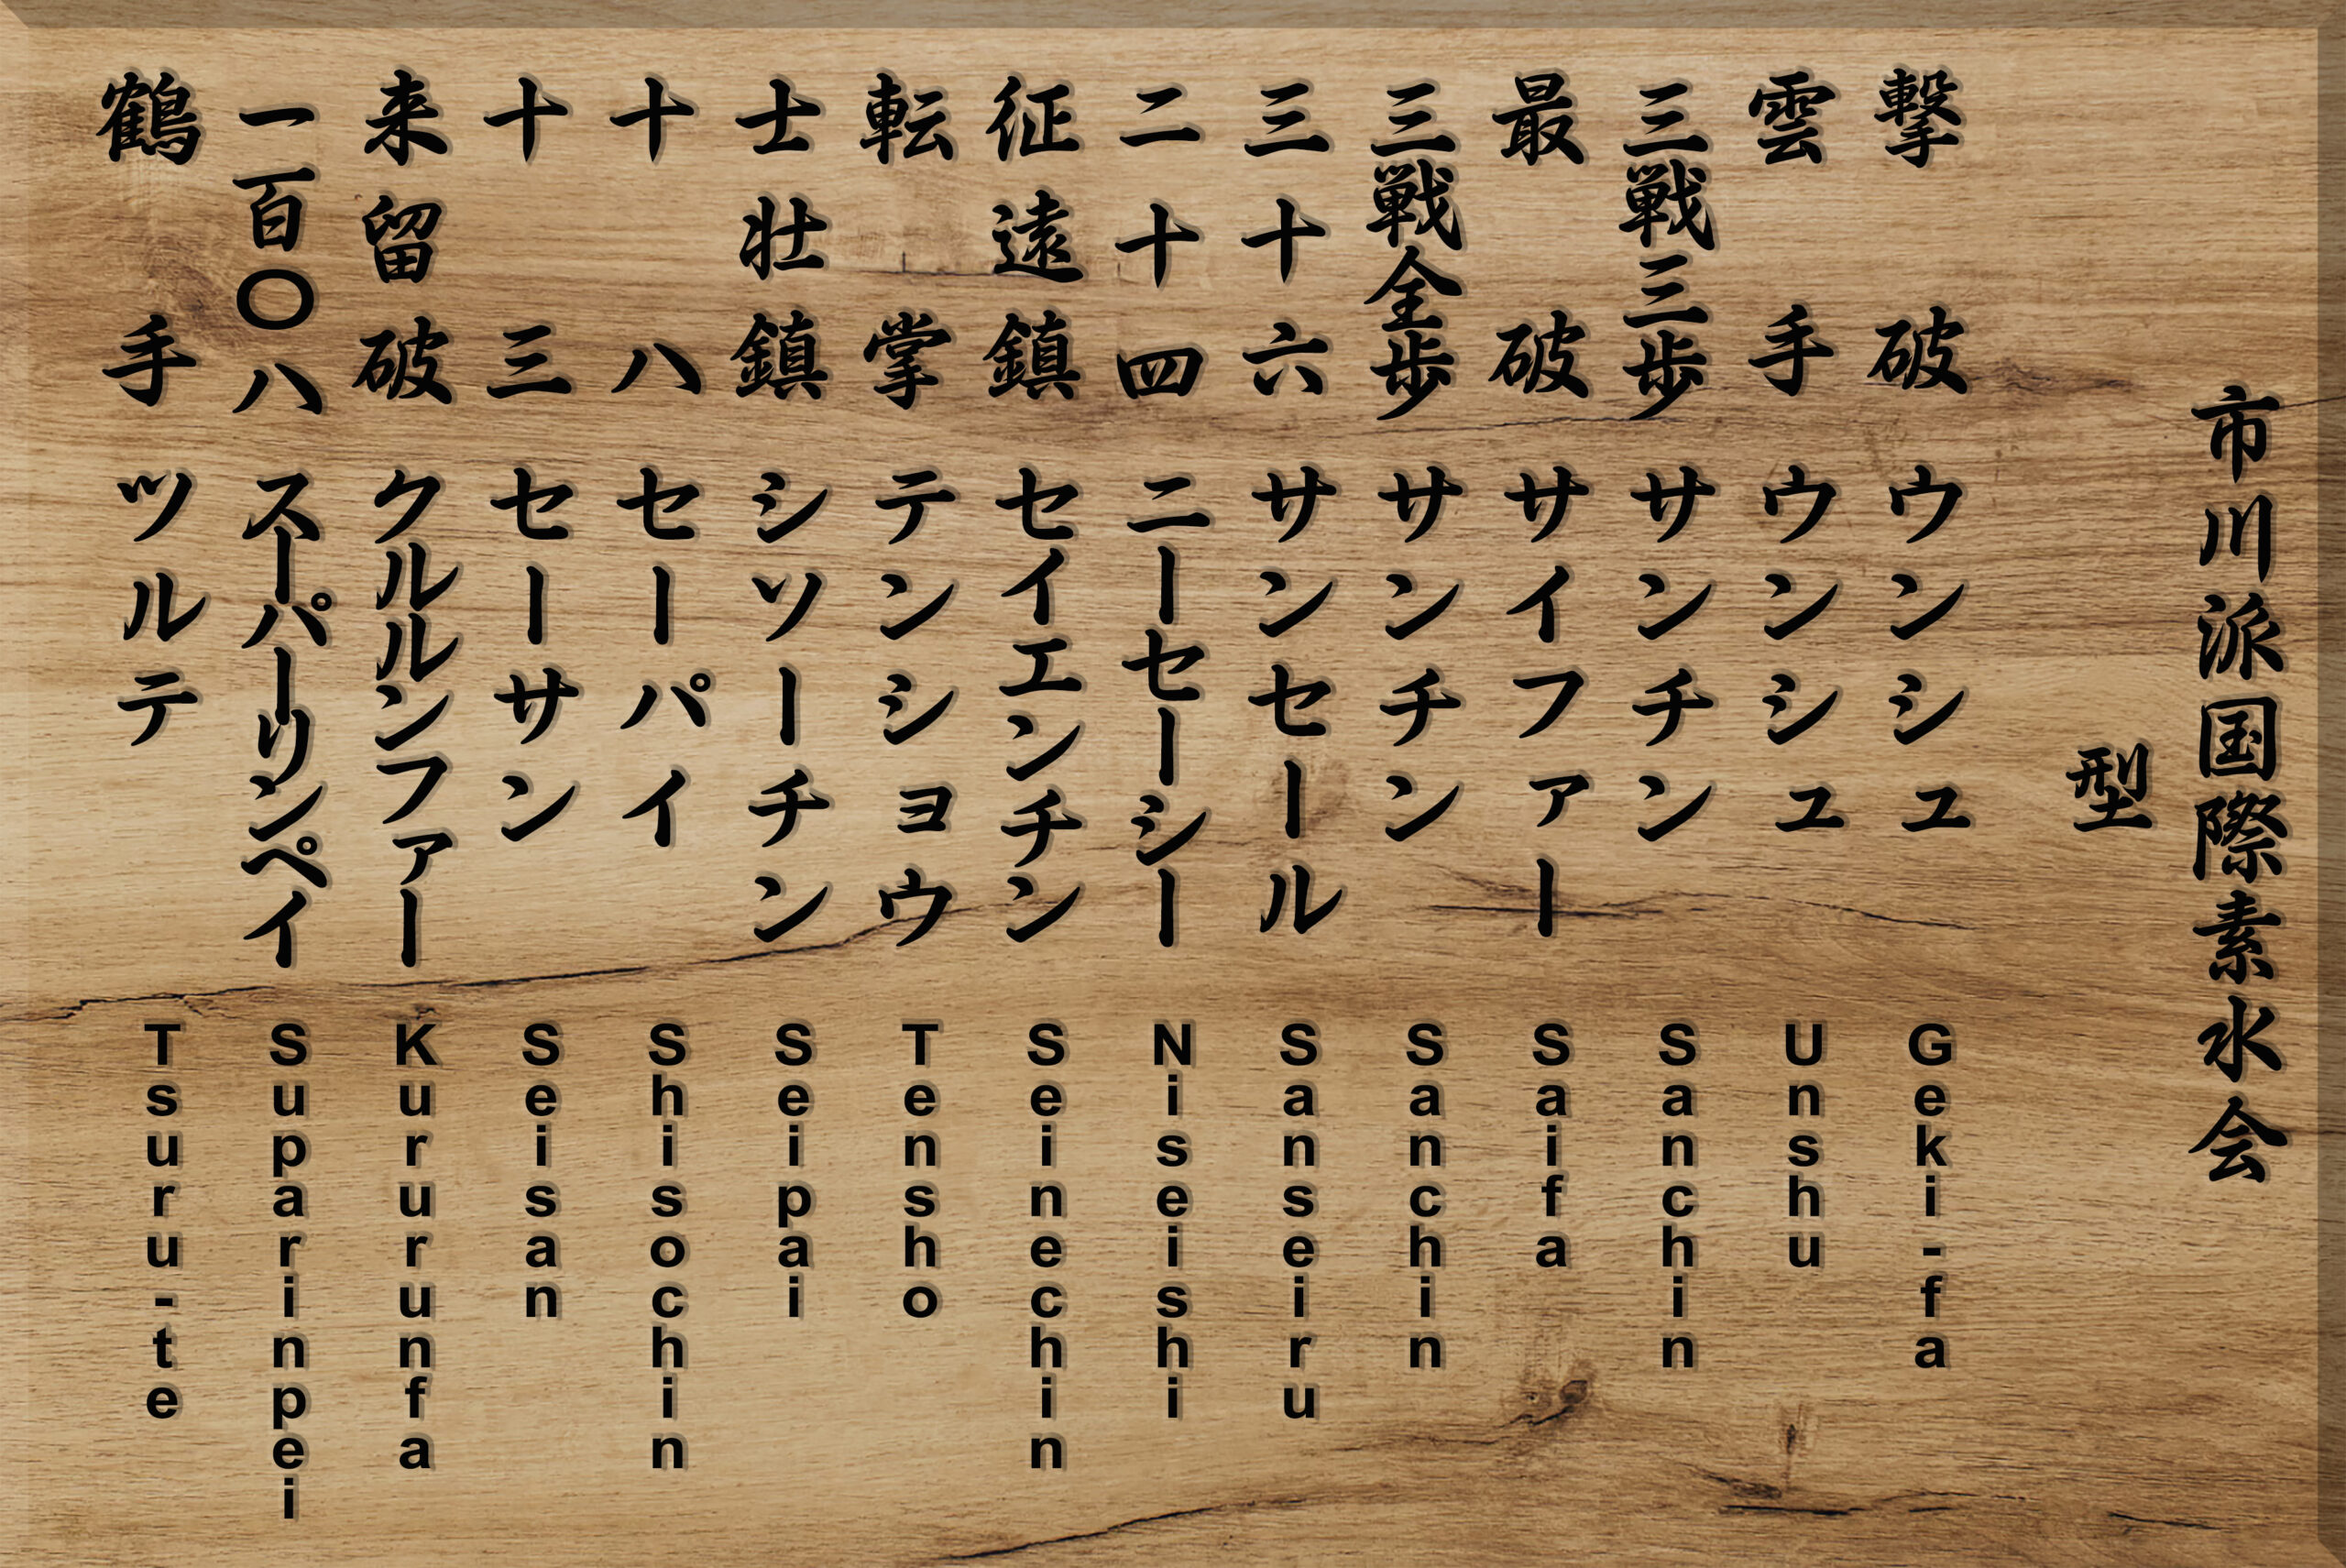 市川派国際素水会
型
撃破 ウンシュ Geki-fa
雲手 ウンシュ Unshu
三戦三歩 サンチン Sanchin
最破 サイファー Saifa
三戦全歩 サンチン Sanchin
三十六 サンセール Sanseiru
二十四 ニーセーシー Niseishi
征遠鎮 セイエンチン Seinechin
転掌 テンショウ Tensho
士壮鎮 シソーチン Seipai
十八 セーパイ Shisochin
十三 セーサン Seisan
来留破 クルルンファー Kururunfa
一百〇八 スーパーリンペイ Suparinpei
鶴手 ツルテ Tsuru-te